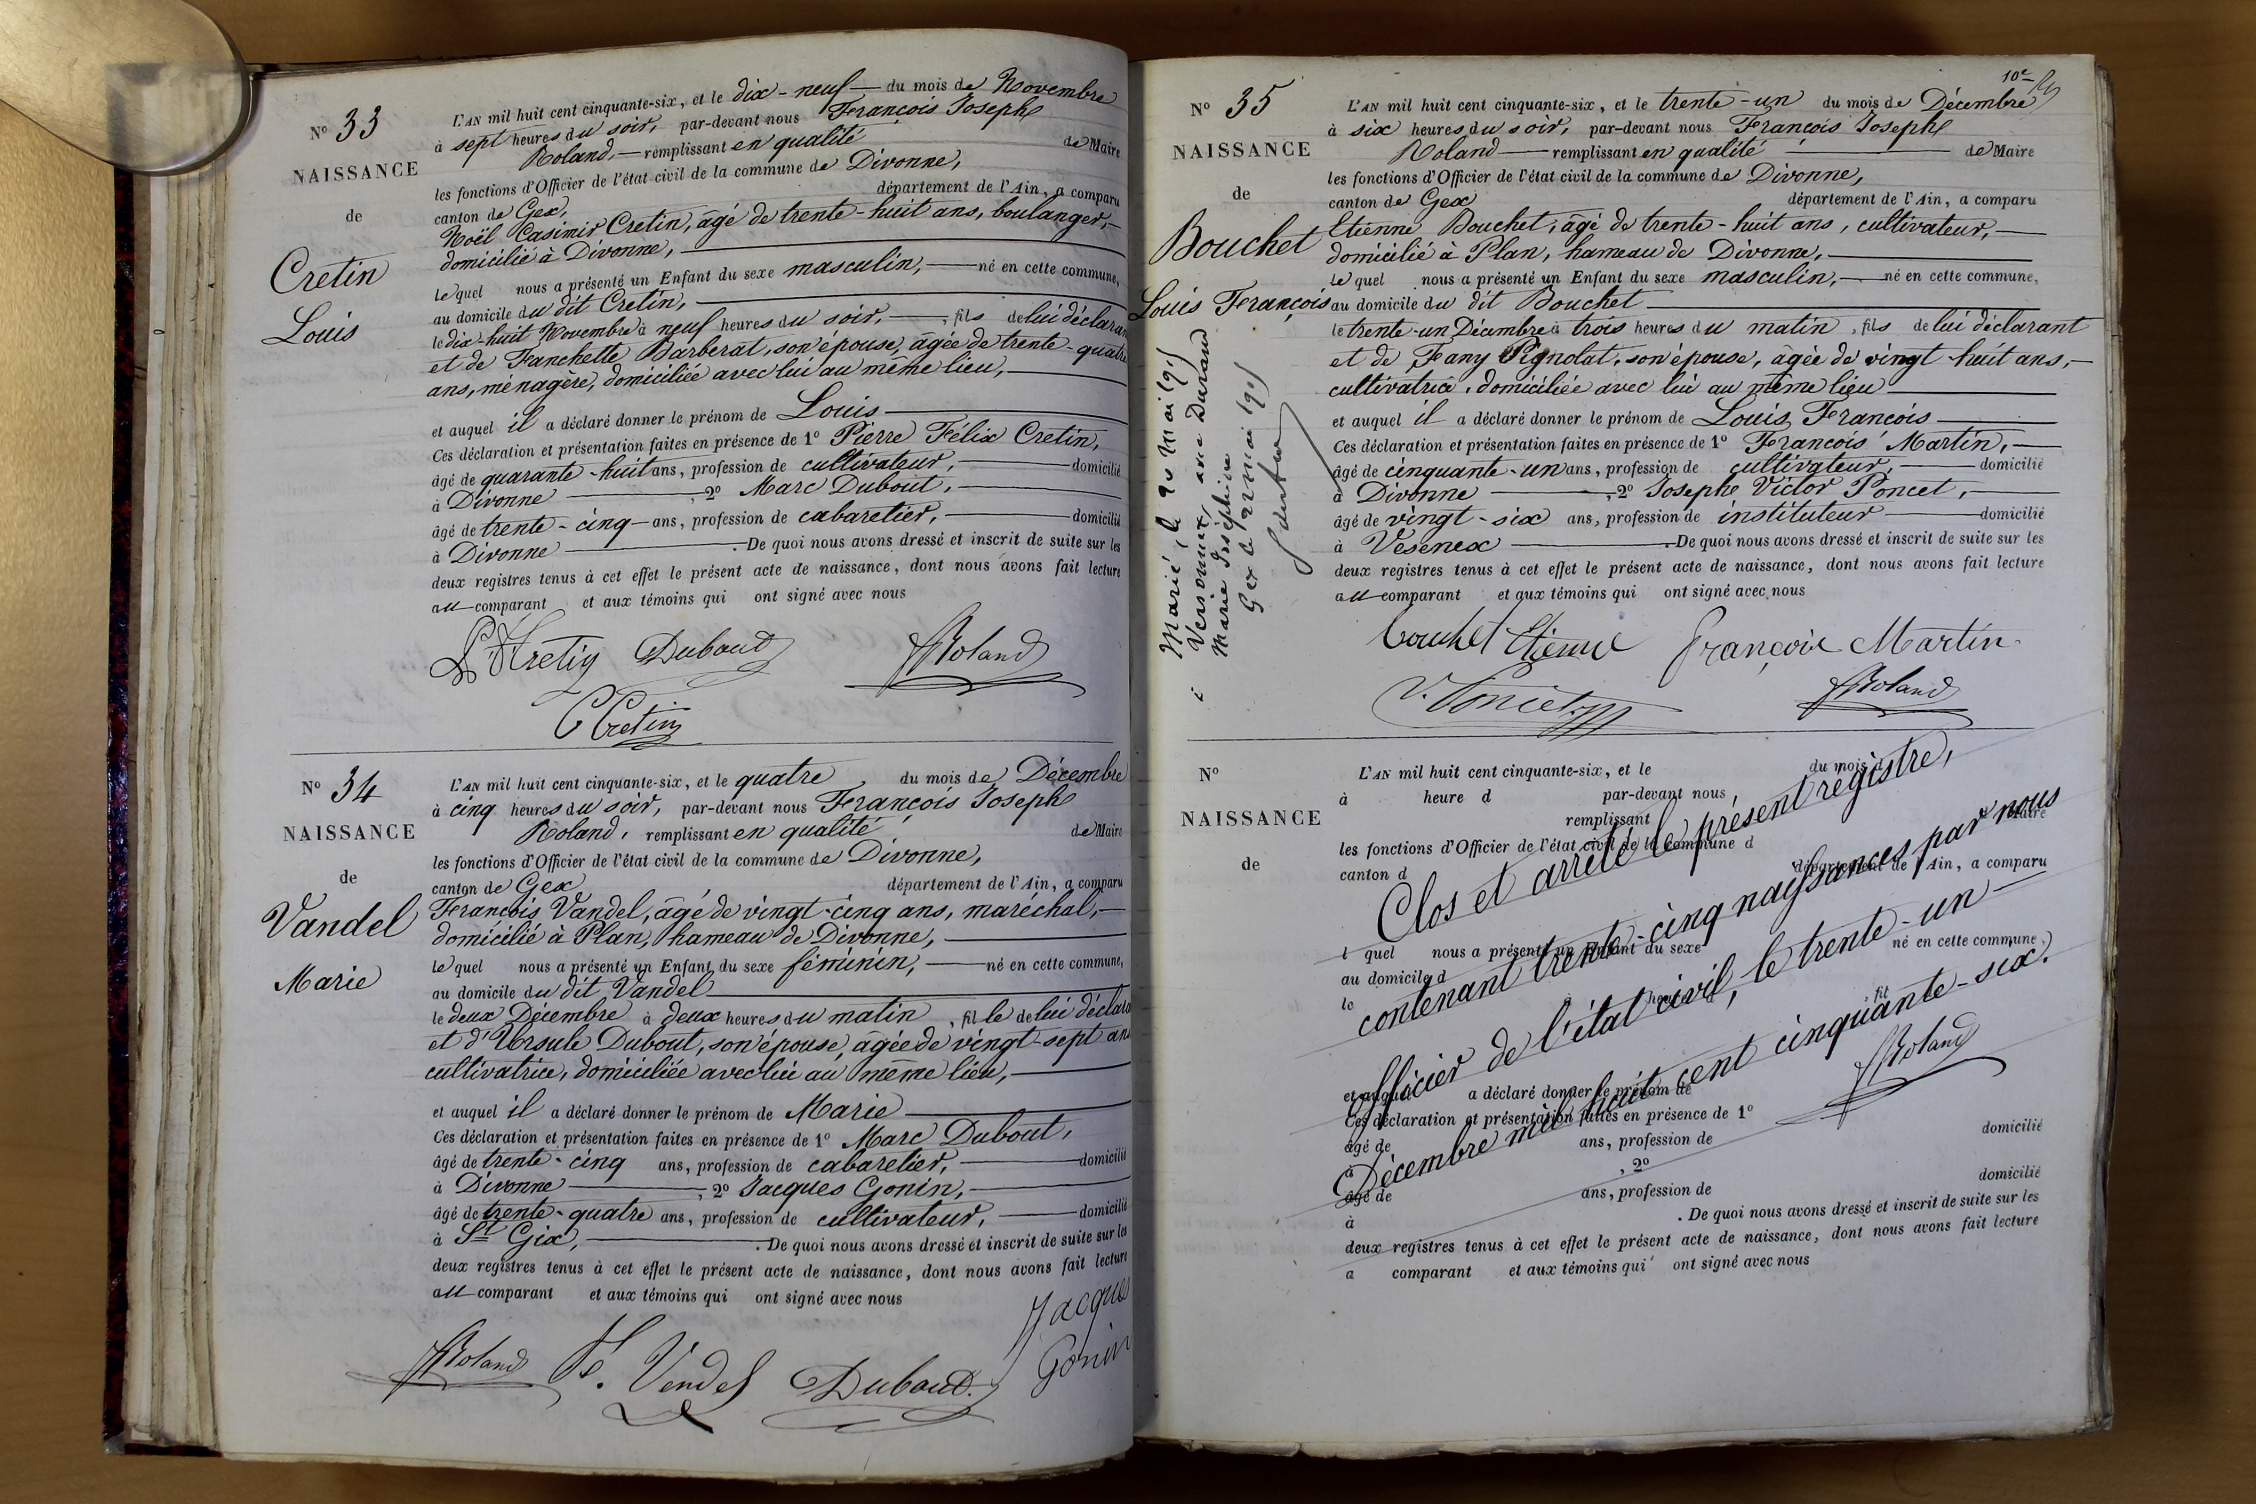 N° 33
NAISSANCE
de
Cretin
Louis
L'AN mil huit cent cinquante-six, et le dix-neuf du mois de Novembre
à sept heures du soir, par-devant nous François Joseph
Roland, remplissant en qualité de Maire
les fonctions d'Officier de l'état civil de la commune de Divonne,
canton de Gex, département de l'Ain, a comparu
Noël Casimir Cretin, âgé de trente-huit ans, boulanger,
domicilié à Divonne,
lequel nous a présenté un Enfant du sexe masculin, né en cette commune,
au domicile du dit Cretin,
le dix-huit Novembre à neuf heures du soir, fils de lui déclarant
et de Fanchette Barberat, son épouse, âgée de trente-quatre
ans, ménagère, domiciliée avec lui au même lieu,
et auquel il a déclaré donner le prénom de Louis
Ces déclaration et présentation faites en présence de 1° Pierre Félix Cretin,
âgé de quarante-huit ans, profession de cultivateur, domicilié
à Divonne, 2° Marc Dubout,
âgé de trente-cinq ans, profession de cabaretier, domicilié
à Divonne. De quoi nous avons dressé et inscrit de suite sur les
deux registres tenus à cet effet le présent acte de naissance, dont nous avons fait lecture
au comparant et aux témoins qui ont signé avec nous
Cretin Duboud Roland
C Cretin
N° 34
NAISSANCE
de
Vandel
Marie
L'AN mil huit cent cinquante-six, et le quatre du mois de Décembre
à cinq heures du soir, par-devant nous François Joseph
Roland, remplissant en qualité de Maire
les fonctions d'Officier de l'état civil de la commune de Divonne,
canton de Gex département de l'Ain, a comparu
François Vandel, âgé de vingt-cinq ans, maréchal,
domicilié à Plan, hameau de Divonne,
lequel nous a présenté un Enfant du sexe féminin, né en cette commune,
au domicile du dit Vandel
le deux Décembre à deux heures du matin, fille de lui déclara
et d'Ursule Dubout, son épouse, âgée de vingt-sept ans
cultivatrice, domiciliée avec lui au même lieu,
et auquel il a déclaré donner le prénom de Marie
Ces déclaration et présentation faites en présence de 1° Marc Dubout,
âgé de trente-cinq ans, profession de cabaretier, domicilié
à Divonne, 2° Jacques Gonin,
âgé de trente-quatre ans, profession de cultivateur, domicilié
à St Gix, . De quoi nous avons dressé et inscrit de suite sur les
deux registres tenus à cet effet le présent acte de naissance, dont nous avons fait lecture
au comparant et aux témoins qui ont signé avec nous
Jacques
Gonin
Roland F. Vendel Duboud.
10e
N° 35
NAISSANCE
de
Bouchet
Louis François
Marié le 20 Mai 191
Versonnex, avec Durand
Marie Joséphine
Gex le 22 mai 191
L'AN mil huit cent cinquante-six, et le trente-un du mois de Décembre
à six heures du soir, par-devant nous François Joseph
Roland remplissant en qualité de Maire
les fonctions d'Officier de l'état civil de la commune de Divonne,
canton de Gex département de l'Ain, a comparu
Etienne Bouchet, âgé de trente-huit ans, cultivateur,
domicilié à Plan, hameau de Divonne,
lequel nous a présenté un Enfant du sexe masculin, né en cette commune,
au domicile du dit Bouchet
le trente-un Décembre à trois heures du matin, fils de lui déclarant
et de Fany Pignolat, son épouse, âgée de vingt-huit ans,
cultivatrice, domiciliée avec lui au même lieu
et auquel il a déclaré donner le prénom de Louis François
Ces déclaration et présentation faites en présence de 1° François Martin,
âgé de cinquante-un ans, profession de cultivateur, domicilié
à Divonne, 2° Joseph Victor Poncet,
âgé de vingt-six ans, profession de instituteur domicilié
à Vésenex. De quoi nous avons dressé et inscrit de suite sur les
deux registres tenus à cet effet le présent acte de naissance, dont nous avons fait lecture
au comparant et aux témoins qui ont signé avec nous
Bouchet Etienne François Martin
V. Poncet Roland
N°
NAISSANCE
de
L'AN mil huit cent cinquante-six, et le du mois d
à heure d par-devant nous,
remplissant Maire
les fonctions d'Officier de l'état civil de la commune d
canton d département de l'Ain, a comparu
l quel nous a présenté un Enfant du sexe né en cette commune,
au domicile d
le heure , fil
et auquel a déclaré donner le prénom de
Ces déclaration et présentation faites en présence de 1°
âgé de ans, profession de domicilié
à , 2°
âgé de ans, profession de domicilié
à . De quoi nous avons dressé et inscrit de suite sur les
deux registres tenus à cet effet le présent acte de naissance, dont nous avons fait lecture
a comparant et aux témoins qui ont signé avec nous
Clos et arrêté le présent régistre,
contenant trente-cinq naissances par nous
officier de l'état civil, le trente-un
Décembre mil huit cent cinquante-six.
Roland